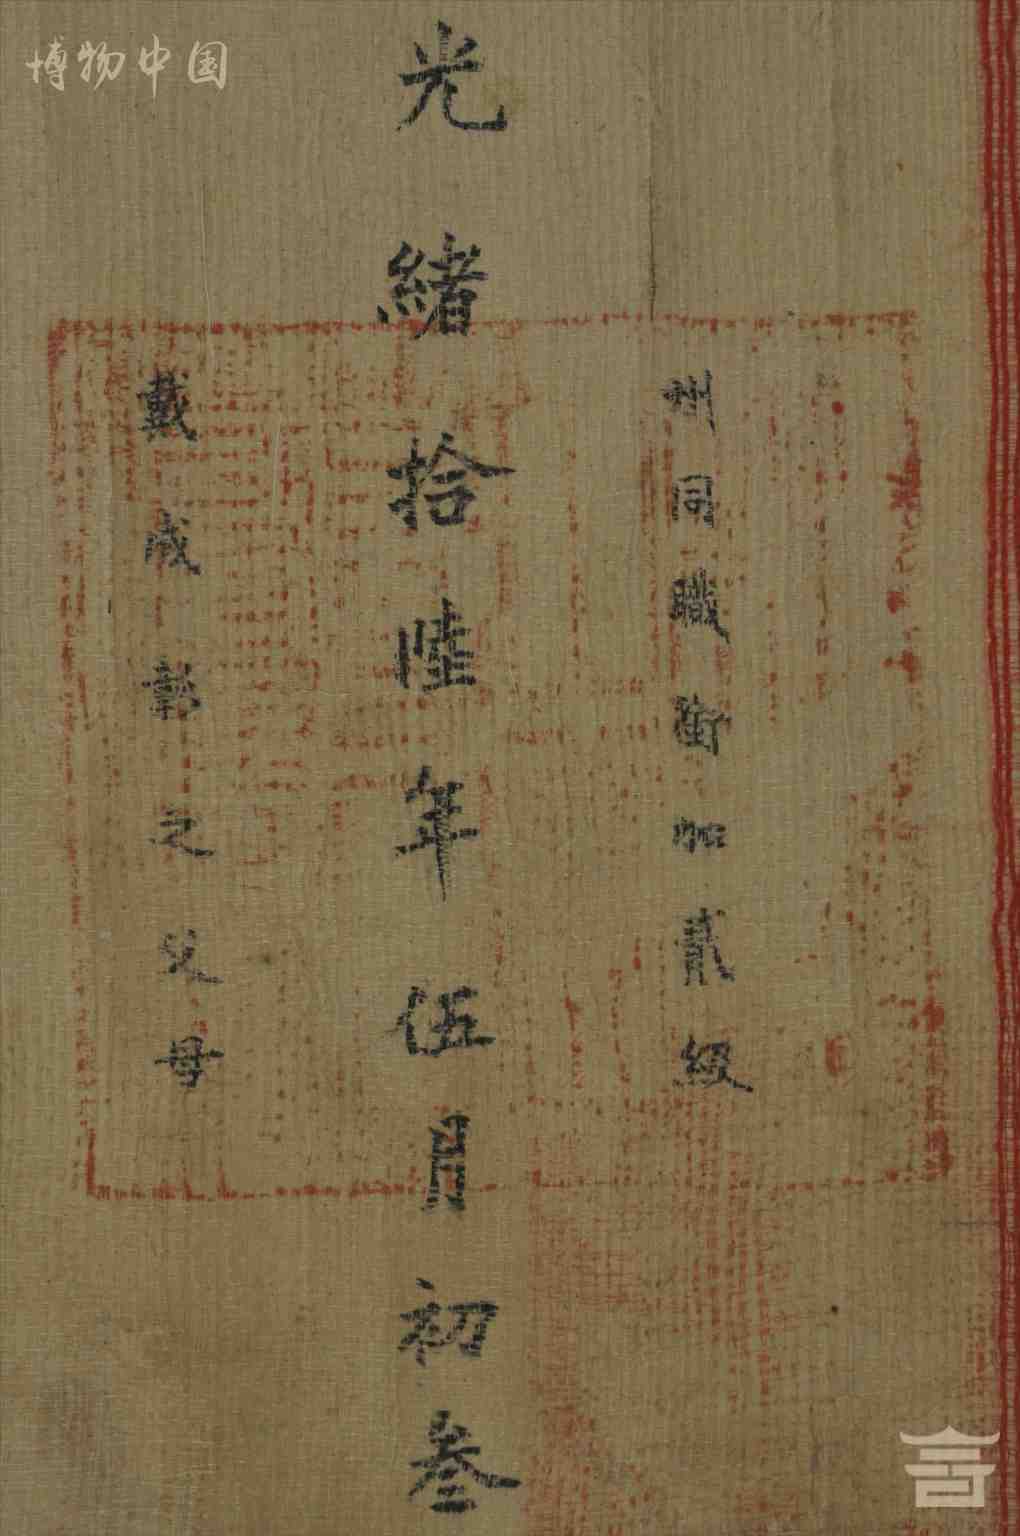 博物中国
州同職銜加貳級
光緒拾陸年伍月初叁
戴成彰之父母